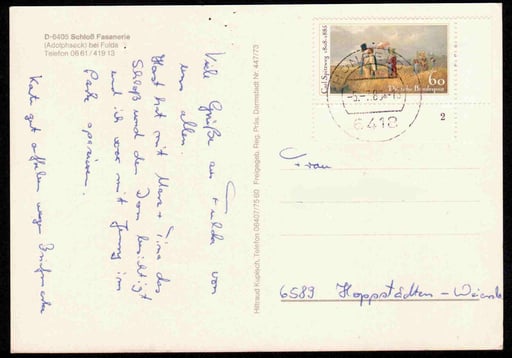 D-6405 Schloß Fasanerie
(Adolphseck) bei Fulda
Telefon 0661/41913
Viele Grüße aus Fulda von
uns allen.
Horst hat mit Marc + Tina das
Schloß und den Dom besichtigt
und ich war mit Jenny im
Park spazieren.
Karte gut aufheben wegen Briefmarke
Hiltraud Kupisch, Telefon 06407/7560 Freigegeb. Reg. Präs. Darmstadt Nr. 447/73
Carl Spitzweg 1808-1885
60
Deutsche Bundespost
6418
2
Frau
6589 Hoppstädten-Weiersb